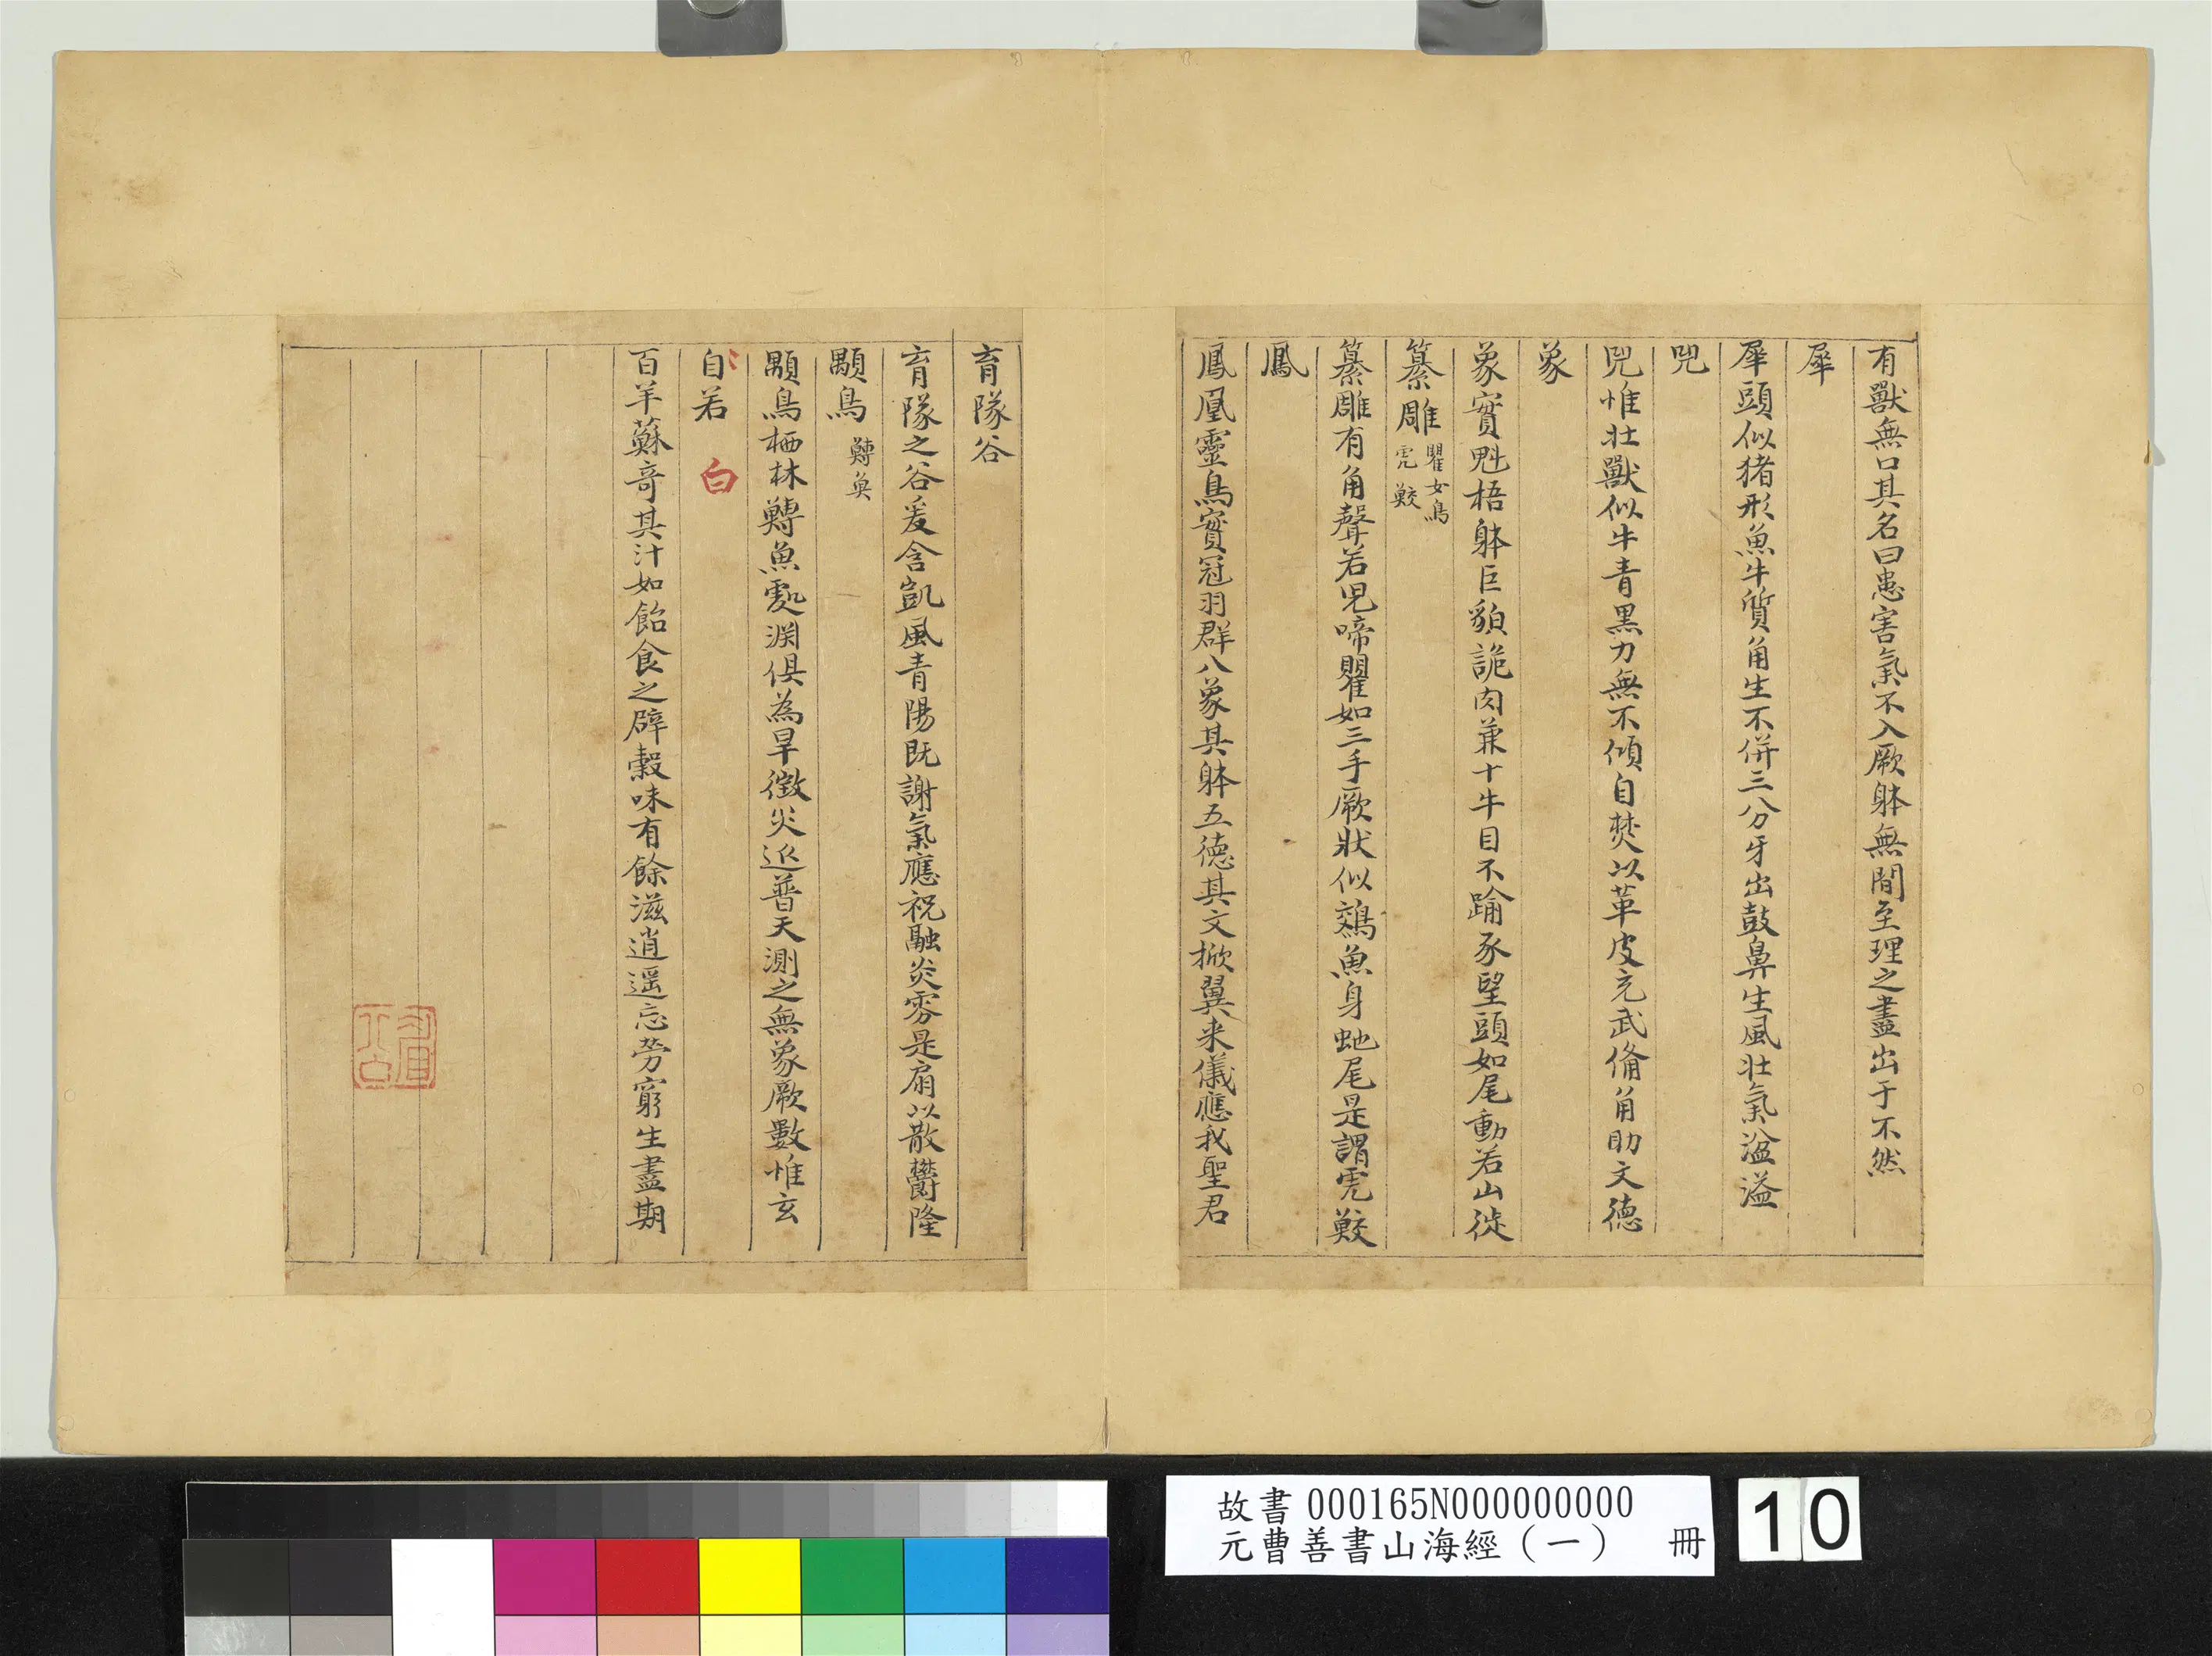 有獸無口其名曰患害氣不入厥躰無間至理之盡出于不然
犀
犀頭似猪形魚牛質角生不併三分牙出鼓鼻生風壯氣溢溢
兕
兕惟壯獸似牛青黑力無不傾自焚以革皮充武俻角助文德
象
象實魁梧躰巨貌詭肉兼十牛目不踰豕望頭如尾動若山徙
纂雕 瞿女鳥
虎鮫
纂雕有角聲若児啼瞿如三手厥狀似鵁魚身虵尾是謂虎鮫
鳳
鳳凰靈鳥實冠羽群八象其躰五德其文掀翼来儀應我聖君
育隊谷
育隊之谷爰含凱風青陽既謝氣應祝融炎雰是扇以散欝隆
顒鳥 鱄魚
顒鳥栖林鱄魚處渊俱為旱徵灾延普天測之無象厥數惟玄
自若 白
百羊蘇竒其汁如飴食之辟穀味有餘滋逍遥忘勞窮生盡期
故書 000165N000000000
元曹善書山海經（一） 冊
10